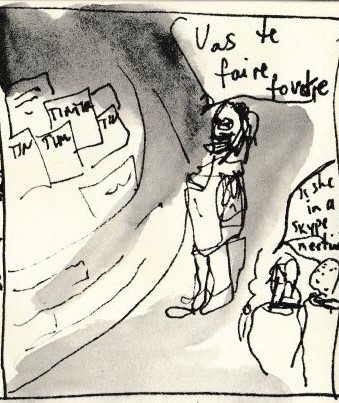 Vas te
faire
foutre
TINTIN
TIN
TIN
TIN
Is she
in a
Skype
meeting